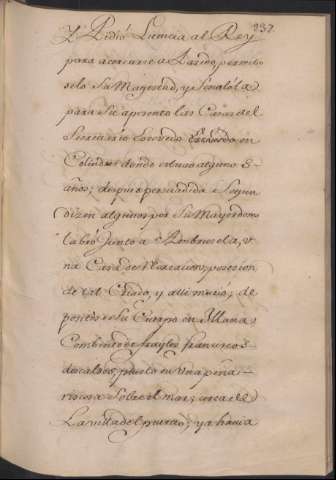 232.
Y Pidió Licencia al Rey
para acercarse a Laredo, permitio
selo Su Magestad, y Señalóla
para Su aposento las Casas del
Secretario Escovedo en
Colindres donde estuvo algunos
años; despues persuadida Segun
dizen algunos por Su Mayordomo
labró Junto a Ambrosela, u
na Casa de Recreacion, posesion
de tal Criado, y alli murió; de
positose Su Cuerpo en Illana,
Combento de frayles franciscos
descalzos, puesto en una peña
riscosa Sobre el mar, cerca de
La villa del puerto; ya havia